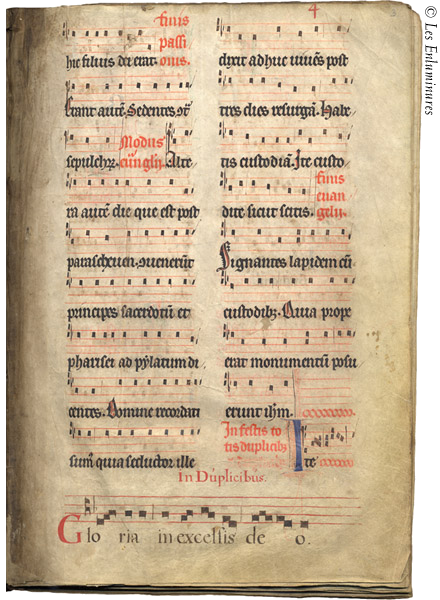 finis
passi
hic filius dei erat onis.
Erant autē. Sedentes ɔt̄
Modus
sepulchꝝ. euāglij Alte
ra autē die que est post
parasceuen. ɔuenerūt
principes sacerdotū et
pharisei ad pylatum di
centes. Domine recordati
sumꝰ quia seductor ille
4
dixit adhuc viuēs post
tres dies resurgā. Habe
tis custodiā. Ite custo
finis
euan
dite sicut scitis. gelij
Signantes lapidem cū
custodibꝫ. Quia prope
erat monumentū posu
erunt ihm.
In festis to
tis duplicibꝫ Ite
In Duplicibus.
Glo ria in excelsis de o.
© Les Enluminures